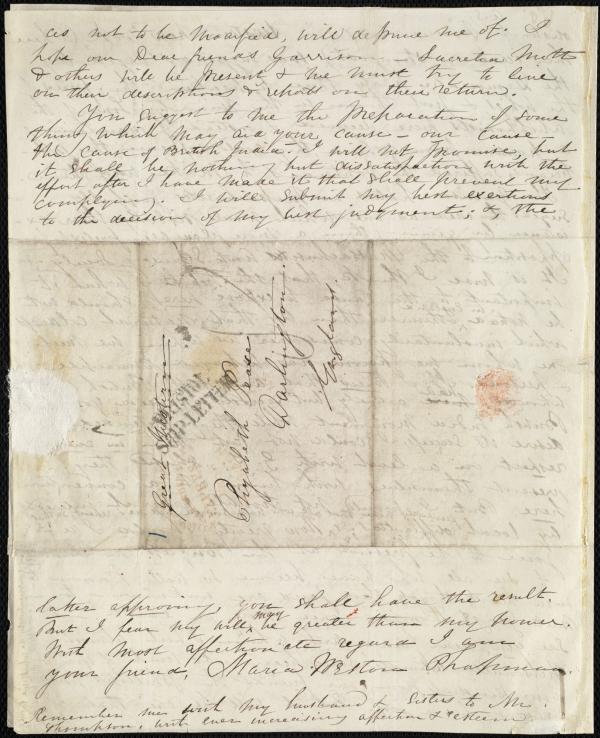 ces not to be modified, will deprive me of. I
hope our Dear friends Garrison - Lucretia Mott
& others will be present & we must try to live
on their descriptions & reports on their return.
You suggest to me the preparation of some
thing which may aid your cause - our cause -
the cause of British India. I will not promise, but
it shall be nothing but dissatisfaction with the
effort after I have made it that shall prevent my
complying. I will submit my best exertions
to the decision of my best judgment; & the
Great Western
BRISTOL
SHIP-LETTER
Elizabeth Pease
Darlington.
England.
latter approving, you shall have the result.
But I fear my will may be greater than my power.
With most affectionate regard I am
your friend, Maria Weston Chapman.
Remember me with my husband & sisters to Mr.
Thompson, with ever increasing affection & esteem